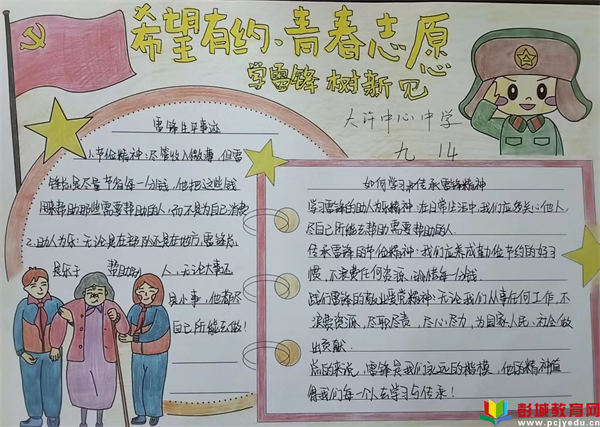 希望有约、青春志愿
学雷锋 树新风
大许中心中学
九、14
雷锋生平事迹
1.节俭精神:尽管收入微薄,但雷
锋总是尽量节省每一分钱,他把这些钱
用来帮助那些需要帮助的人,而不是为自己消费
2.助人为乐:无论是在部队还是在地方,雷锋总
是乐于 帮助别 人,无论大事还
是小事,他都尽
自己所能去做!
如何学习和传承雷锋精神
学习雷锋的助人为乐精神:在日常生活中,我们应多关心他人,
尽自己所能去帮助需要帮助的人.
传承雷锋的节俭精神:我们应养成勤俭节约的好习
惯,不浪费任何资源,珍惜每一分钱.
践行雷锋的敬业奉献精神:无论我们从事任何工作,不
浪费资源,尽职尽责,尽心尽力,为国家人民、社会做
出贡献.
总的来说,雷锋是我们永远的楷模,他的精神值
得我们每一个人去学习与传承!
彭城教育网
www.pcjyedu.cn